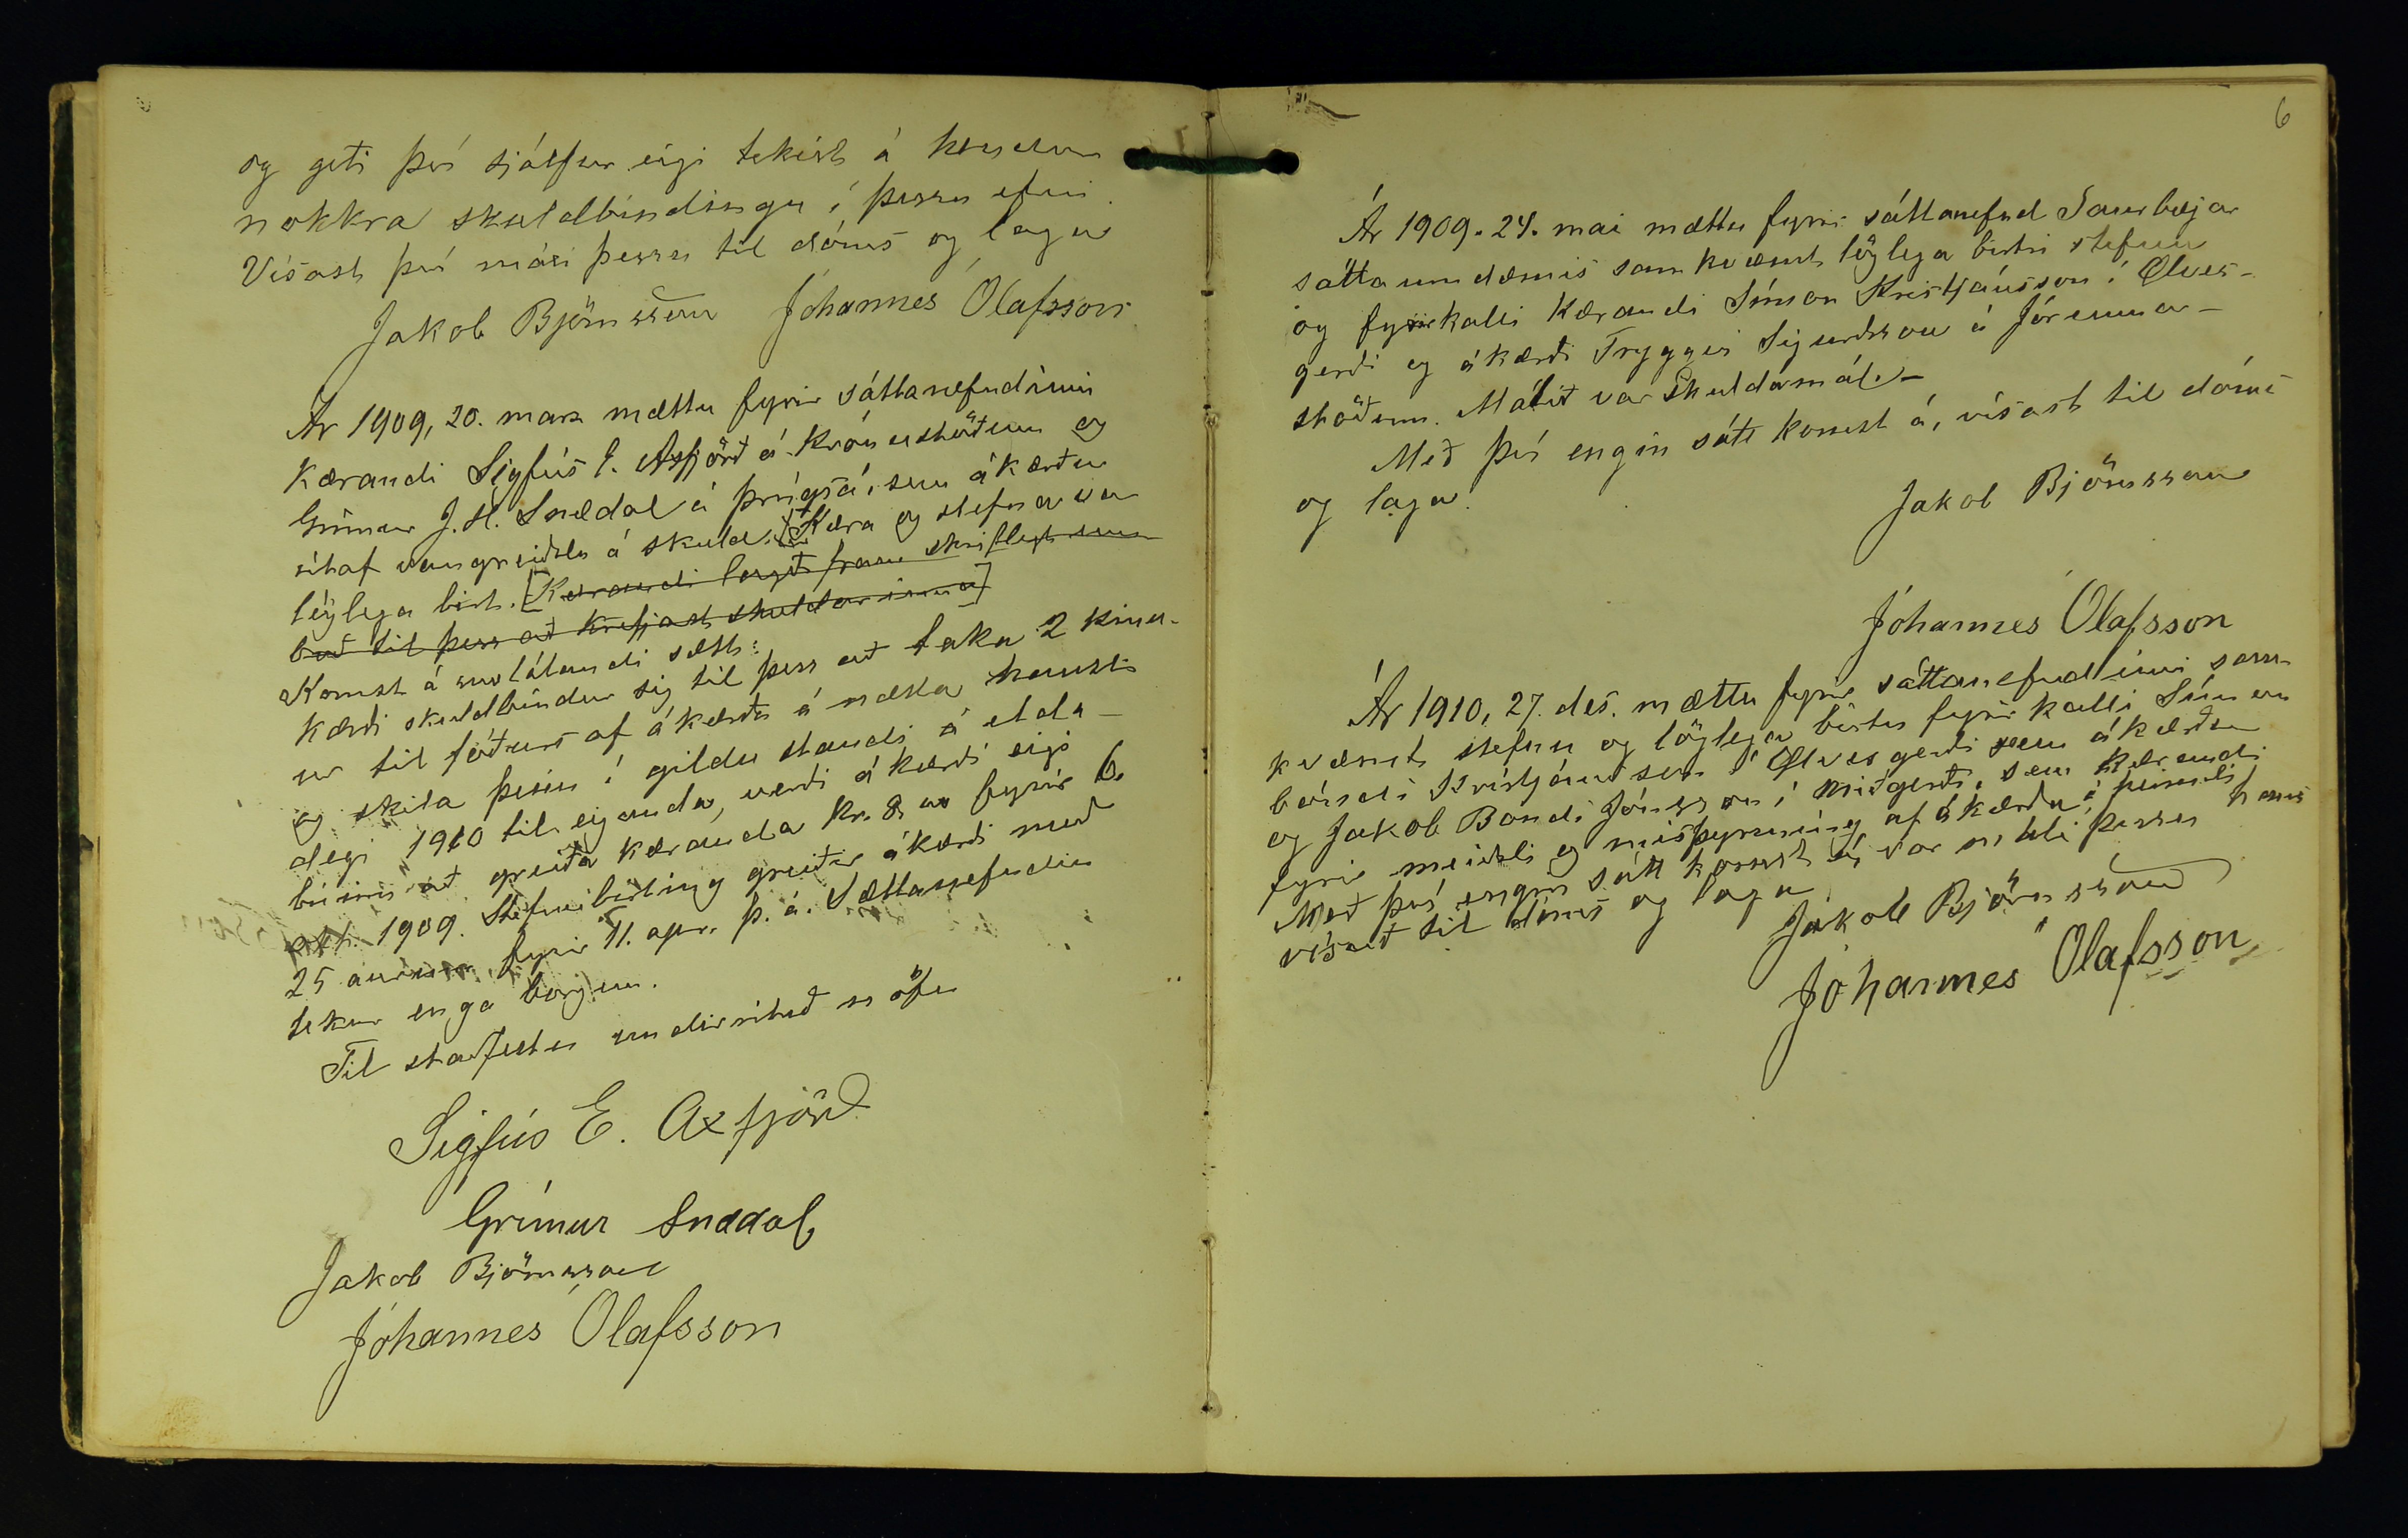 og geti því sjálfur eigi tekist á hendur
nokkra skuldbindingu í þessu efni.
Vísast því máli þessu til dóms og laga
Jakob Björnsson Jóhannes Ólafsson
Ár 1909, 20. mars mættu fyrir sáttanefndinni
kærandi Sigfús E. Axfjörð á Krónustöðum og
Grímur J. H. Snædal á Þrúgsá, sem ákærður
útaf vangreiðslu á skuld. Kæra og stefna var
löglega birt. [Kærandi lagði fram skriflegt um
boð til þess að krefjast skuldarinnar]
Komst á svolátandi sætt:
Kærði skuldbindur sig til þess að taka 2 kind-
ur til fóðurs af ákærða á næsta hausti
og skila þeim í gildu standi á elda-
degi 1910 til eiganda, verði ákærði eigi
búinn að greiða kæranda kr. 8 fyrir 6.
okt. 1909. Stefnubirting greiðir ákærði með
25 aurum fyrir 11. apr. þ. á. Sáttanefndin
tekur enga borgun.
Til staðfestu undirrituð nöfn
Sigfús E. Axfjörð
Grímur Snædal
Jakob Björnsson
Jóhannes Ólafsson
6
Ár 1909. 24. mai mættu fyrir sáttanefnd Saurbæjar
sáttaumdæmis samkvæmt löglega birtri stefnu
og fyrirkalli kærandi Símon Kristjánsson í Ölves-
gerði og ákærði Tryggvi Sigurðsson á Jórunnar-
stöðum. Málið var skuldamál.-
Með því engin sátt komst á, vísast til dóms
og laga.
Jakob Björnsson
Jóhannes Ólafsson
Ár 1910, 27. des. mættu fyrir sáttanefndinni sam-
kvæmt stefnu og löglega birtu fyrirkalli Símon
bóndi Kristjánsson í Ölvesgerði sem ákærður
og Jakob Bondi Jónsson í Miðgerði, sem kærandi
fyrir meiðsli og misþyrming af ákærðu á heimili hans
Með því engin sátt komst á, var máli þessu
vísað til dóms og laga
Jakob Björnsson
Jóhannes Ólafsson